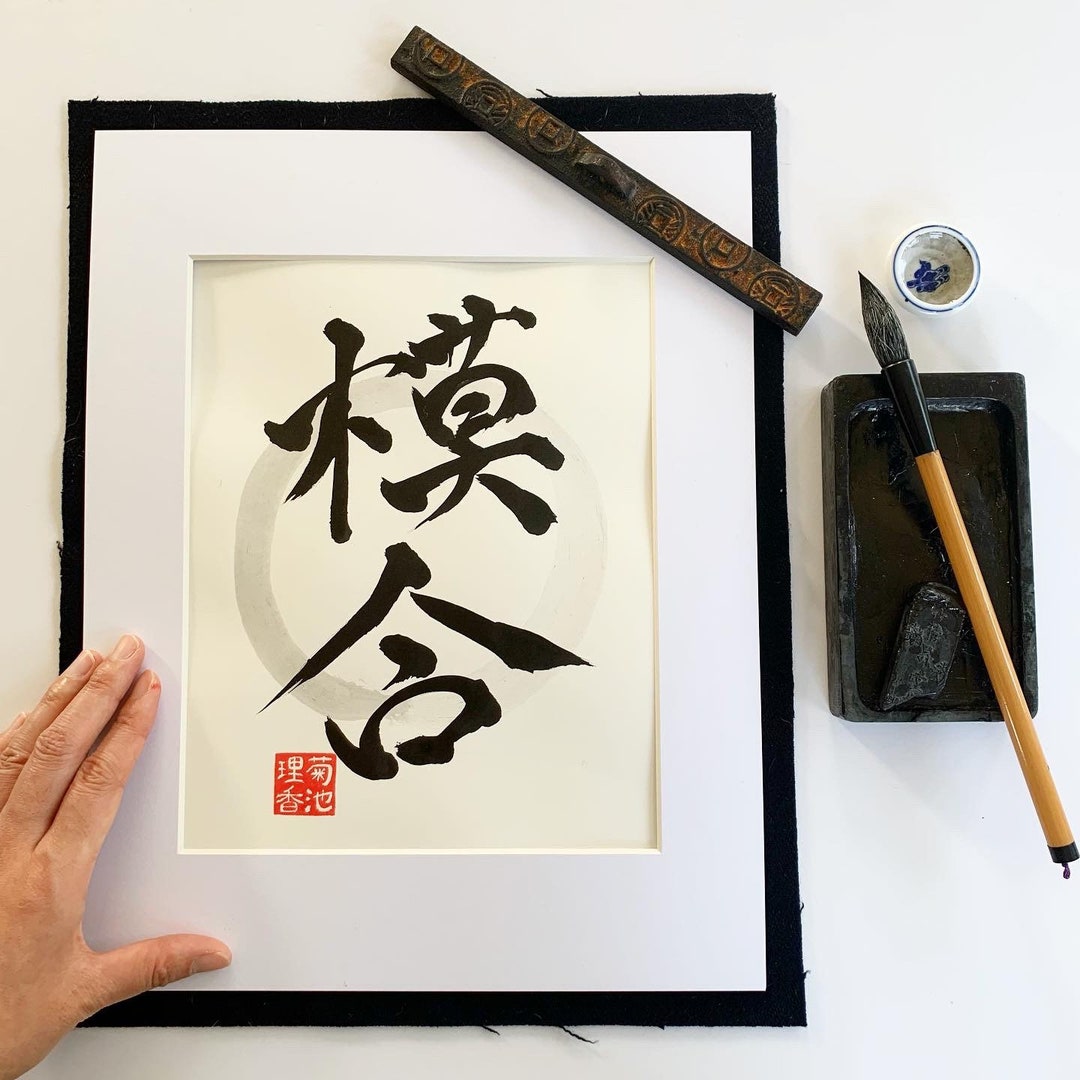 模合
菊池
理香